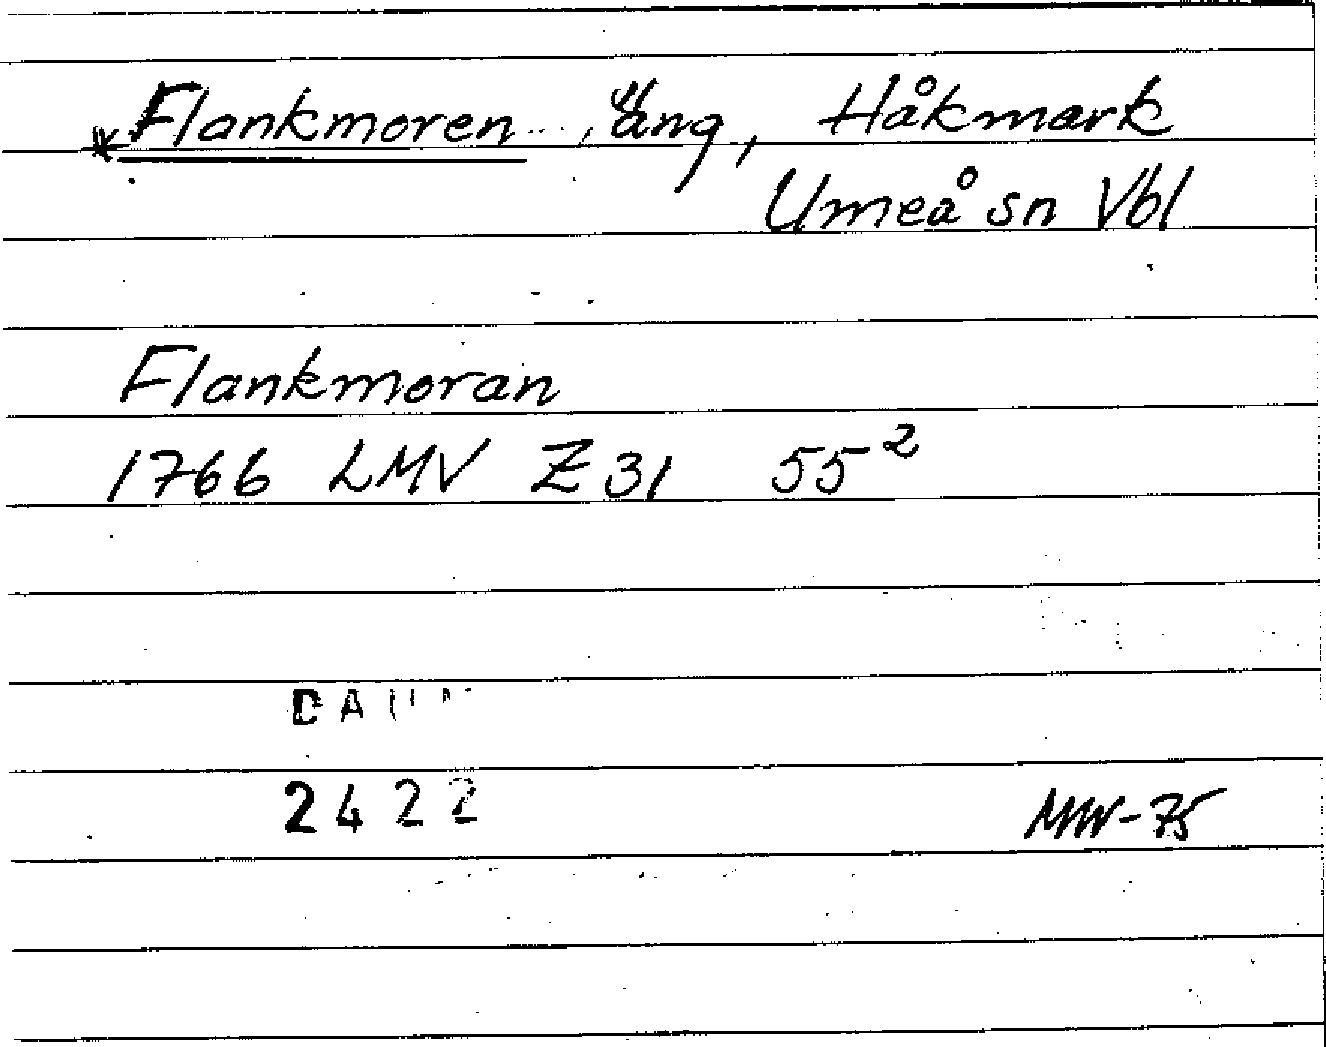 *Flankmoren, äng, Håkmark
Umeå sn Vbl
Flankmoran
1766 LMV Z 31 55²
2422
MW-75